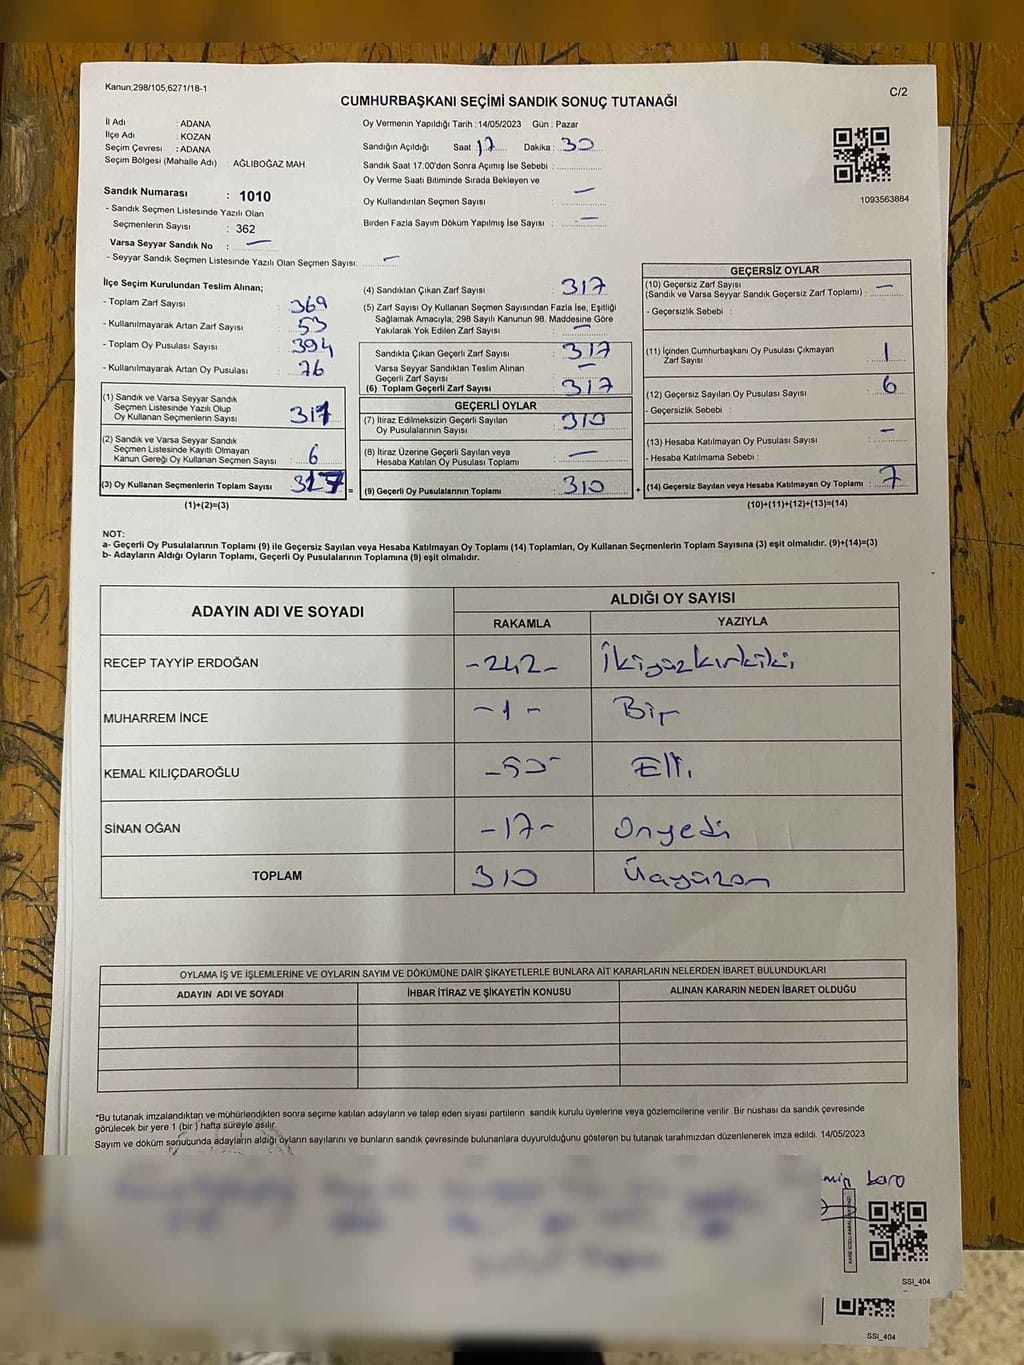 Kanun,298/105,6271/18-1
C/2
CUMHURBAŞKANI SEÇİMİ SANDIK SONUÇ TUTANAĞI
İl Adı : ADANA
İlçe Adı : KOZAN
Seçim Çevresi : ADANA
Seçim Bölgesi (Mahalle Adı) : AĞLIBOĞAZ MAH.
Sandık Numarası : 1010
- Sandık Seçmen Listesinde Yazılı Olan
Seçmenlerin Sayısı : 362
Varsa Seyyar Sandık No : —
- Seyyar Sandık Seçmen Listesinde Yazılı Olan Seçmen Sayısı: —
Oy Vermenin Yapıldığı Tarih :14/05/2023 Gün : Pazar
Sandığın Açıldığı Saat 17 Dakika : 30
Sandık Saat 17:00'den Sonra Açımış İse Sebebi :
Oy Verme Saati Bitiminde Sırada Bekleyen ve
Oy Kullandırılan Seçmen Sayısı : —
Birden Fazla Sayım Döküm Yapılmış İse Sayısı : —
1093563884
İlçe Seçim Kurulundan Teslim Alınan;
- Toplam Zarf Sayısı : 369
- Kullanılmayarak Artan Zarf Sayısı : 53
- Toplam Oy Pusulası Sayısı : 394
- Kullanılmayarak Artan Oy Pusulası : 76
(1) Sandık ve Varsa Seyyar Sandık
Seçmen Listesinde Yazılı Olup
Oy Kullanan Seçmenlerin Sayısı : 311
(2) Sandık ve Varsa Seyyar Sandık
Seçmen Listesinde Kayıtlı Olmayan
Kanun Gereği Oy Kullanan Seçmen Sayısı : 6
(3) Oy Kullanan Seçmenlerin Toplam Sayısı : 317
(1)+(2)=(3)
(4) Sandıktan Çıkan Zarf Sayısı : 317
(5) Zarf Sayısı Oy Kullanan Seçmen Sayısından Fazla İse, Eşitliği
Sağlamak Amacıyla; 298 Sayılı Kanunun 98. Maddesine Göre
Yakılarak Yok Edilen Zarf Sayısı : —
Sandıkta Çıkan Geçerli Zarf Sayısı : 317
Varsa Seyyar Sandıktan Teslim Alınan
Geçerli Zarf Sayısı : —
(6) Toplam Geçerli Zarf Sayısı : 317
GEÇERLİ OYLAR
(7) İtiraz Edilmeksizin Geçerli Sayılan
Oy Pusulalarının Sayısı : 310
(8) İtiraz Üzerine Geçerli Sayılan veya
Hesaba Katılan Oy Pusulası Toplamı : —
= (9) Geçerli Oy Pusulalarının Toplamı : 310
GEÇERSİZ OYLAR
(10) Geçersiz Zarf Sayısı
(Sandık ve Varsa Seyyar Sandık Geçersiz Zarf Toplamı) : —
- Geçersizlik Sebebi :
(11) İçinden Cumhurbaşkanı Oy Pusulası Çıkmayan
Zarf Sayısı : 1
(12) Geçersiz Sayılan Oy Pusulası Sayısı : 6
- Geçersizlik Sebebi :
(13) Hesaba Katılmayan Oy Pusulası Sayısı : —
- Hesaba Katılmama Sebebi :
+ (14) Geçersiz Sayılan veya Hesaba Katılmayan Oy Toplamı : 7
(10)+(11)+(12)+(13)=(14)
NOT:
a- Geçerli Oy Pusulalarının Toplamı (9) ile Geçersiz Sayılan veya Hesaba Katılmayan Oy Toplamı (14) Toplamları, Oy Kullanan Seçmenlerin Toplam Sayısına (3) eşit olmalıdır. (9)+(14)=(3)
b- Adayların Aldığı Oyların Toplamı, Geçerli Oy Pusulalarının Toplamına (9) eşit olmalıdır.
ADAYIN ADI VE SOYADI
ALDIĞI OY SAYISI
RAKAMLA YAZIYLA
RECEP TAYYİP ERDOĞAN -242- İkiyüzkırkiki
MUHARREM İNCE -1- Bir
KEMAL KILIÇDAROĞLU -50- Elli
SİNAN OĞAN -17- Onyedi
TOPLAM 310 Üçyüzon
OYLAMA İŞ VE İŞLEMLERİNE VE OYLARIN SAYIM VE DÖKÜMÜNE DAİR ŞİKAYETLERLE BUNLARA AİT KARARLARIN NELERDEN İBARET BULUNDUKLARI
ADAYIN ADI VE SOYADI İHBAR İTİRAZ VE ŞİKAYETİN KONUSU ALINAN KARARIN NEDEN İBARET OLDUĞU
*Bu tutanak imzalandıktan ve mühürlendikten sonra seçime katılan adayların ve talep eden siyasi partilerin sandık kurulu üyelerine veya gözlemcilerine verilir .Bir nüshası da sandık çevresinde
görülecek bir yere 1 (bir ) hafta süreyle asılır.
Sayım ve döküm sonucunda adayların aldığı oyların sayılarını ve bunların sandık çevresinde bulunanlara duyurulduğunu gösteren bu tutanak tarafımızdan düzenlenerek imza edildi. 14/05/2023
SSI_404
SSI_404